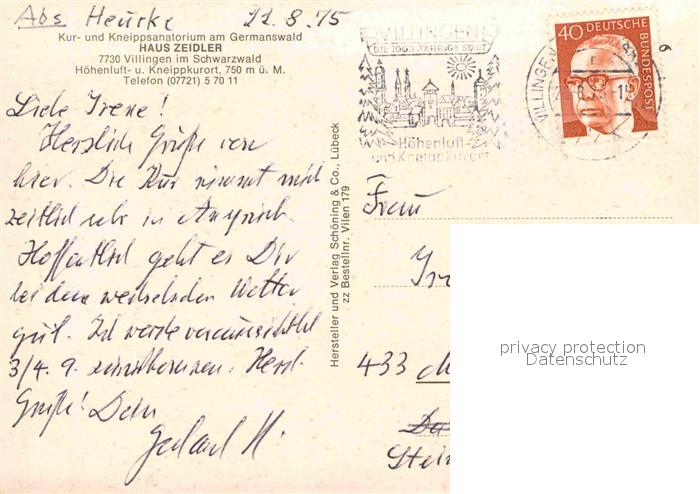 Abs Heurke 22.8.75
Kur- und Kneippsanatorium am Germanswald
HAUS ZEIDLER
7730 Villingen im Schwarzwald
Höhenluft- u. Kneippkurort, 750 m ü. M.
Telefon (07721) 5 70 11
Liebe Irene!
Herzliche Grüße von
hier. Die Kur nimmt mich
zeitlich sehr in Anspruch.
Hoffentlich geht es Dir
bei dem wechselnden Wetter
gut. Ich werde voraussichtlich
3/4. 9. zurückkommen. Herzl.
Grüße! Dein
Gerhard H.
Hersteller und Verlag Schöning & Co., Lübeck
zz Bestellnr. Vllen 179
VILLINGEN
DIE 1000 JÄHRIGE STADT
Höhenluft-
und Kneippkurort
VILLINGEN
40 DEUTSCHE BUNDESPOST
6
Frau
433
privacy protection
Datenschutz